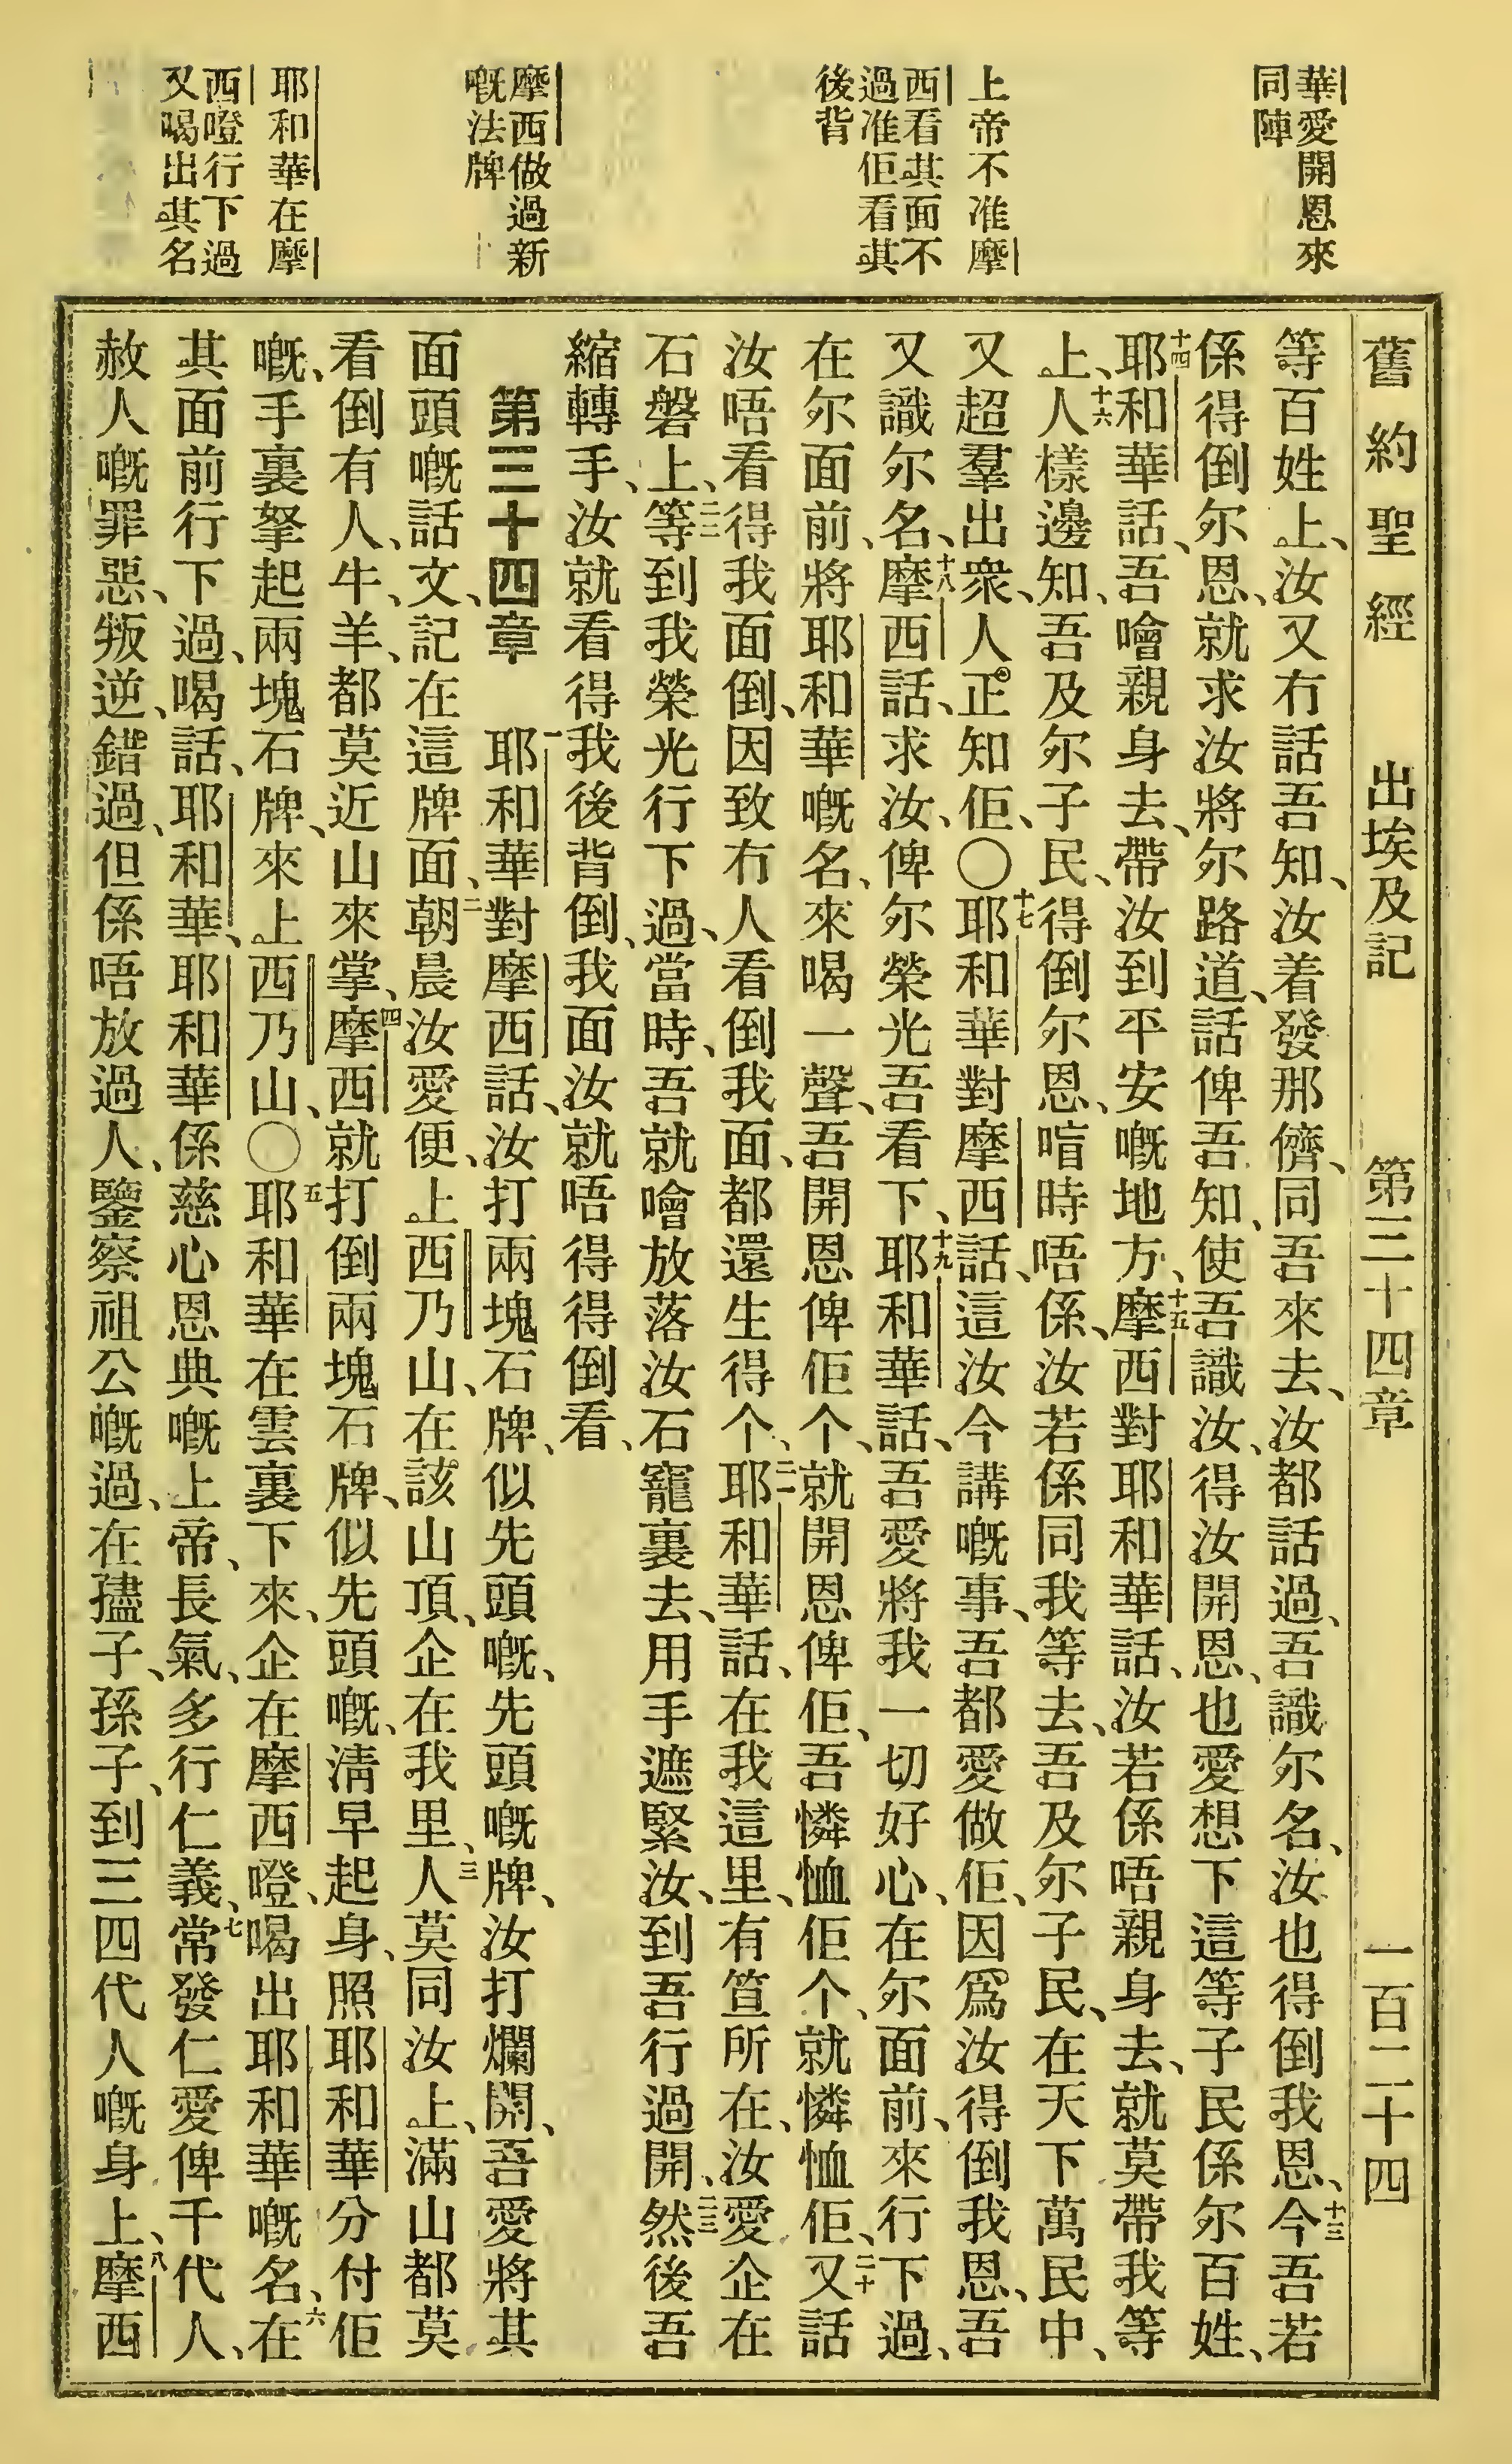 華愛開恩來
同陣
上帝不准摩
西看其面不
過准佢看其
後背
摩西做過新
嘅法牌
耶和華在摩
西嶝行下過
又喝出其名
舊約聖經 出埃及記 第三十四章 一百二十四
等百姓上、汝又冇話吾知、汝着發那儕、同吾來去、汝都話過、吾識尔名、汝也得倒我恩、十三今吾若
係得倒尔恩、就求汝將尔路道、話俾吾知、使吾識汝、得汝開恩、也愛想下這等子民係尔百姓、
十四耶和華話、吾噲親身去、帶汝到平安嘅地方、十五摩西對耶和華話、汝若係唔親身去、就莫帶我等
上、十六人樣邊知、吾及尔子民、得倒尔恩、喧時唔係、汝若係同我等去、吾及尔子民、在天下萬民中、
又超羣出衆、人正知佢、〇十七耶和華對摩西話、這汝今講嘅事、吾都愛做佢、因爲汝得倒我恩、吾
又識尔名、十八摩西話、求汝、俾尔榮光吾看下、十九耶和華話、吾愛將我一切好心、在尔面前、來行下過、
在尔面前、將耶和華嘅名、來喝一聲、吾開恩俾佢个、就開恩俾佢、吾憐恤佢个、就憐恤佢、二十又話
汝唔看得我面倒、因致冇人看倒我面、都還生得个、二一耶和華話、在我這里、有笪所在、汝愛企在
石磐上、二二等到我榮光行下過、當時、吾就噲放落汝石窿裏去、用手遮緊汝、到吾行過開、二三然後吾
縮轉手、汝就看得我後背倒、我面汝就唔得得倒看、
第三十四章 一耶和華對摩西話、汝打兩塊石牌、似先頭嘅、先頭嘅牌、汝打爛開、吾愛將其
面頭嘅話文、記在這牌面、二朝晨汝愛便、上西乃山、在該山頂、企在我里、三人莫同汝上、滿山都莫
看倒有人、牛、羊、都莫近山來掌、四摩西就打倒兩塊石牌、似先頭嘅、淸早起身、照耶和華分付佢
嘅、手裏拏起兩塊石牌、來上西乃山、〇五耶和華在雲裏下來、企在摩西嶝、喝出耶和華嘅名、六在
其面前行下過、喝話、耶和華、耶和華係慈心恩典嘅上帝、長氣、多行仁義、七常發仁愛俾千代人、
赦人嘅罪惡、叛逆、錯過、但係唔放過人、鑒察祖公嘅過、在𡥧子、孫子、到三四代人嘅身上、八摩西